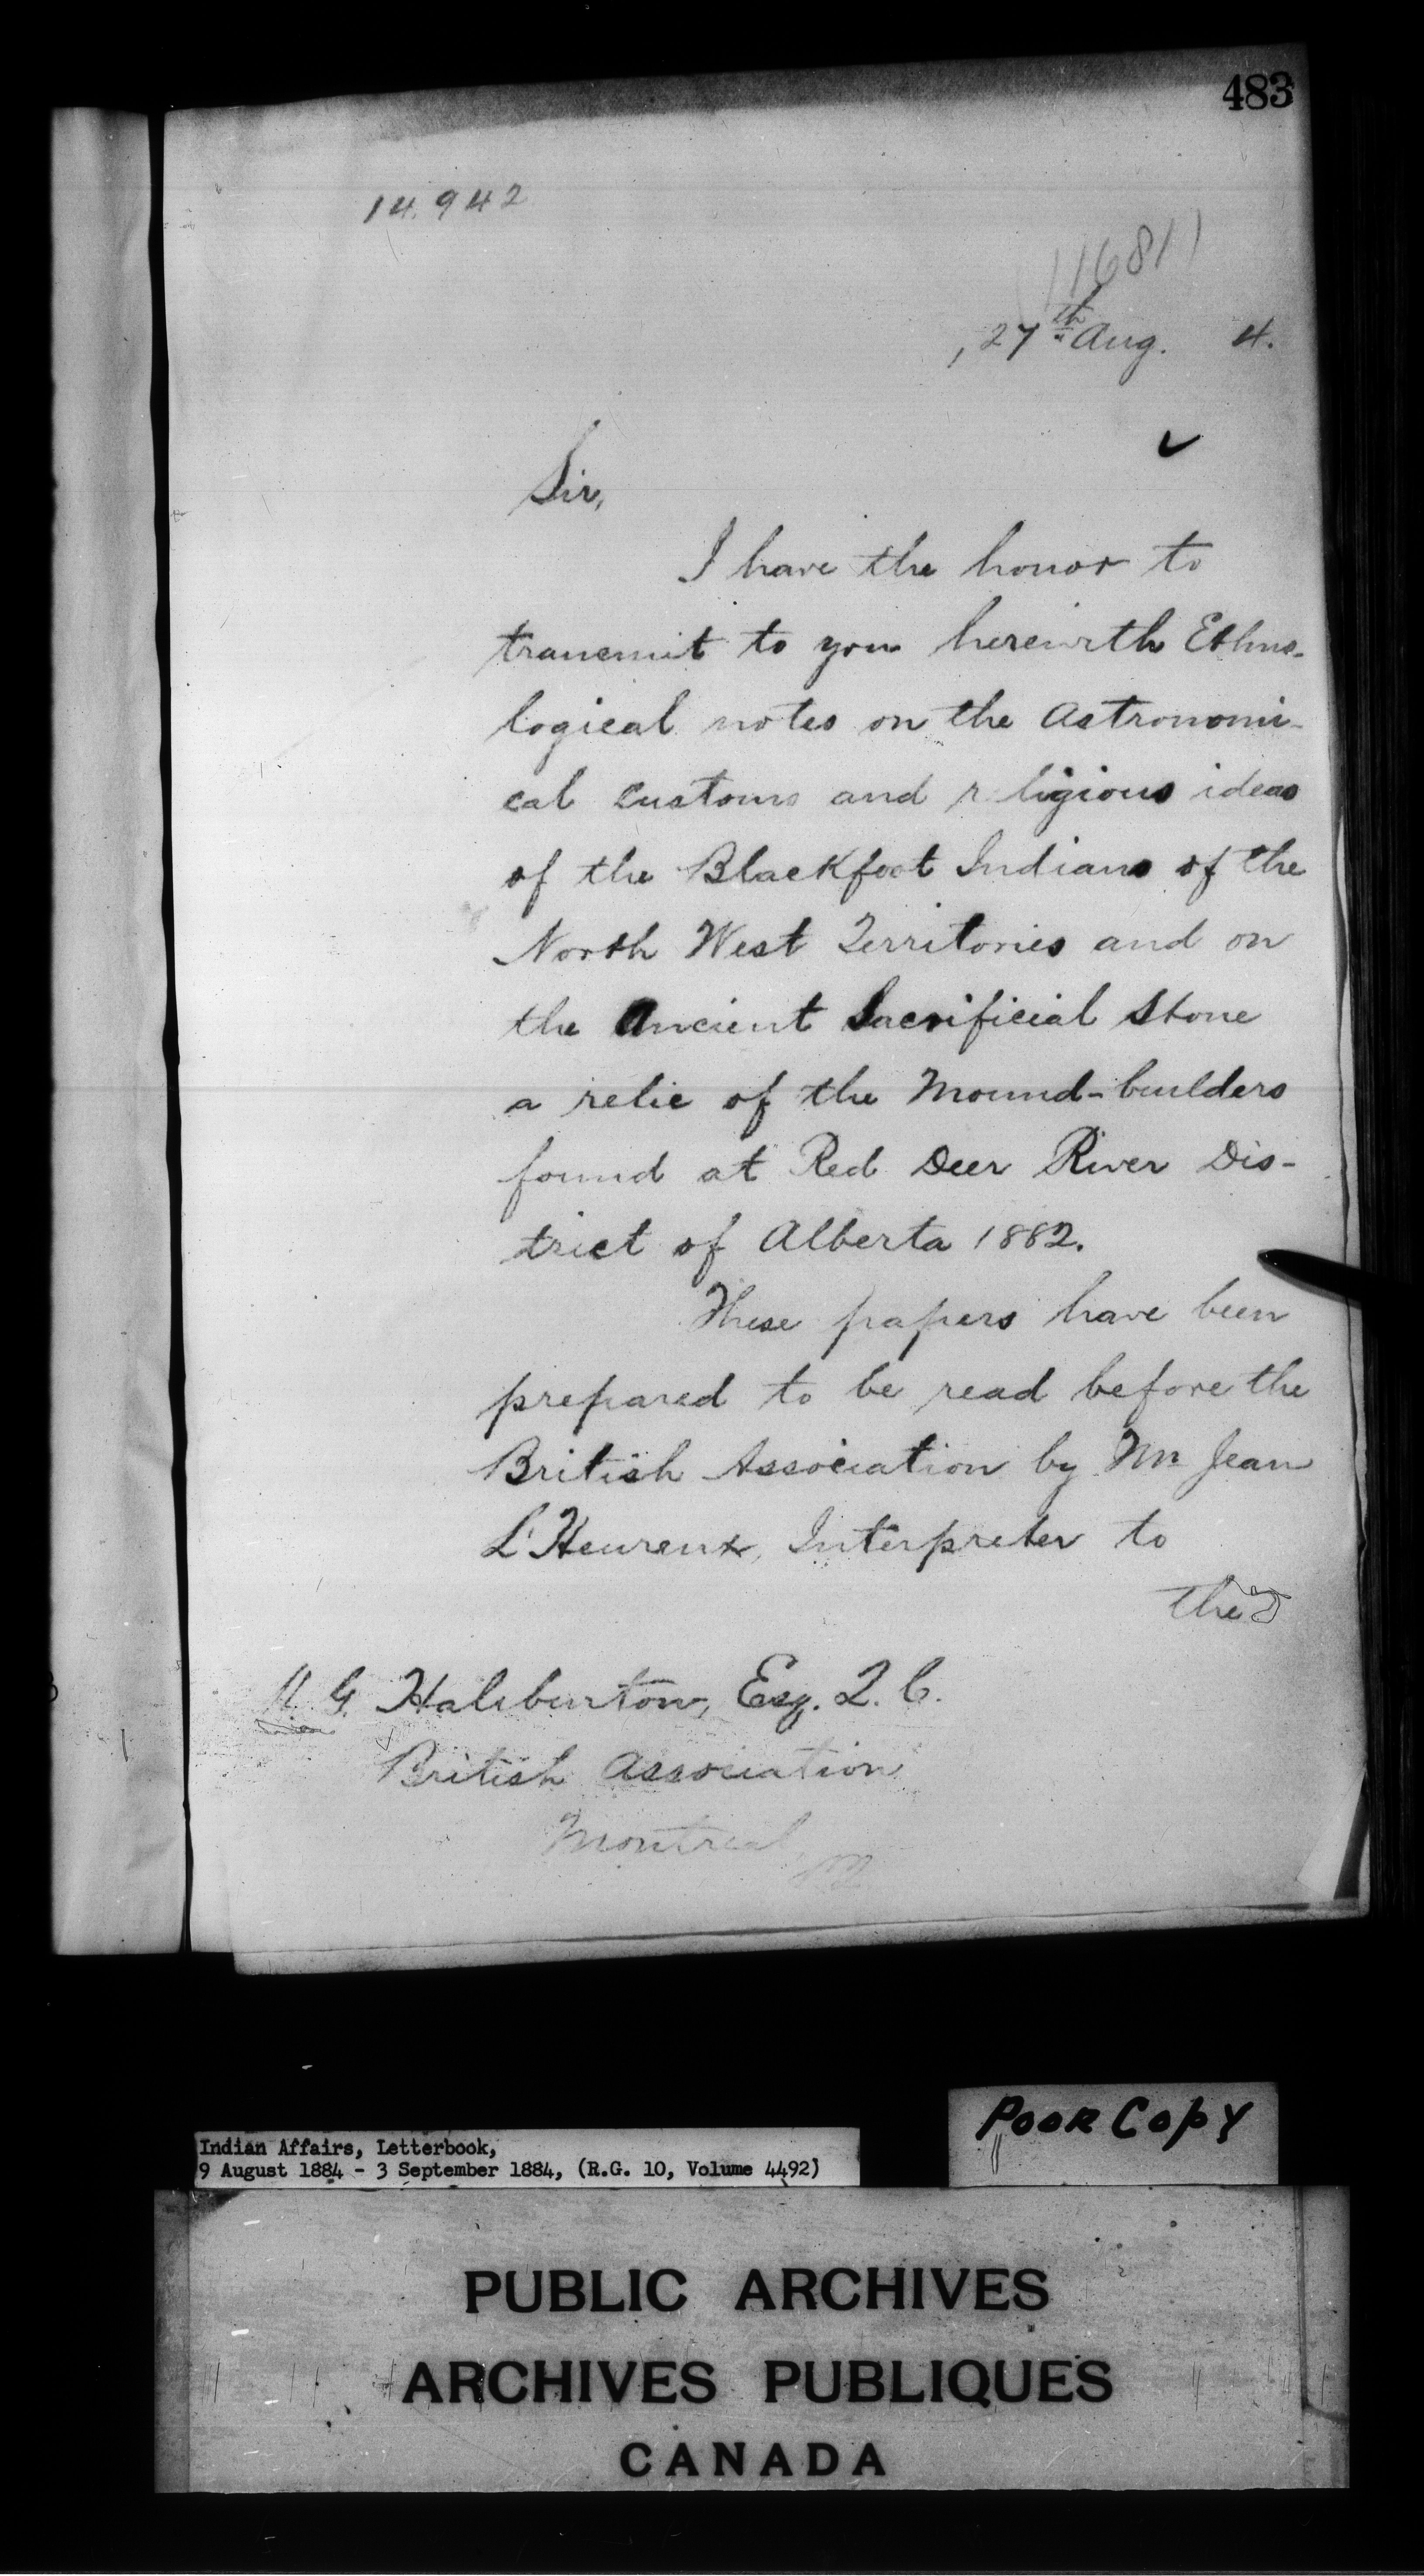 483
14.942
11681
, 27th Aug. 4.
Sir,
I have the honor to
transmit to you herewith Ethno-
logical notes on the Astronomi-
cal customs and religious ideas
of the Blackfoot Indians of the
North West Territories and on
the Ancient Sacrificial Stone
a relic of the Mound-builders
found at Red Deer River Dis-
trict of Alberta 1882.
These papers have been
prepared to be read before the
British Association by Mr Jean
L'Heureux, Interpreter to
the
G. Haliburton, Esq. Q. C.
British Association
Montreal,
Poor Copy
Indian Affairs, Letterbook,
9 August 1884 - 3 September 1884, (R.G. 10, Volume 4492)
PUBLIC ARCHIVES
ARCHIVES PUBLIQUES
CANADA